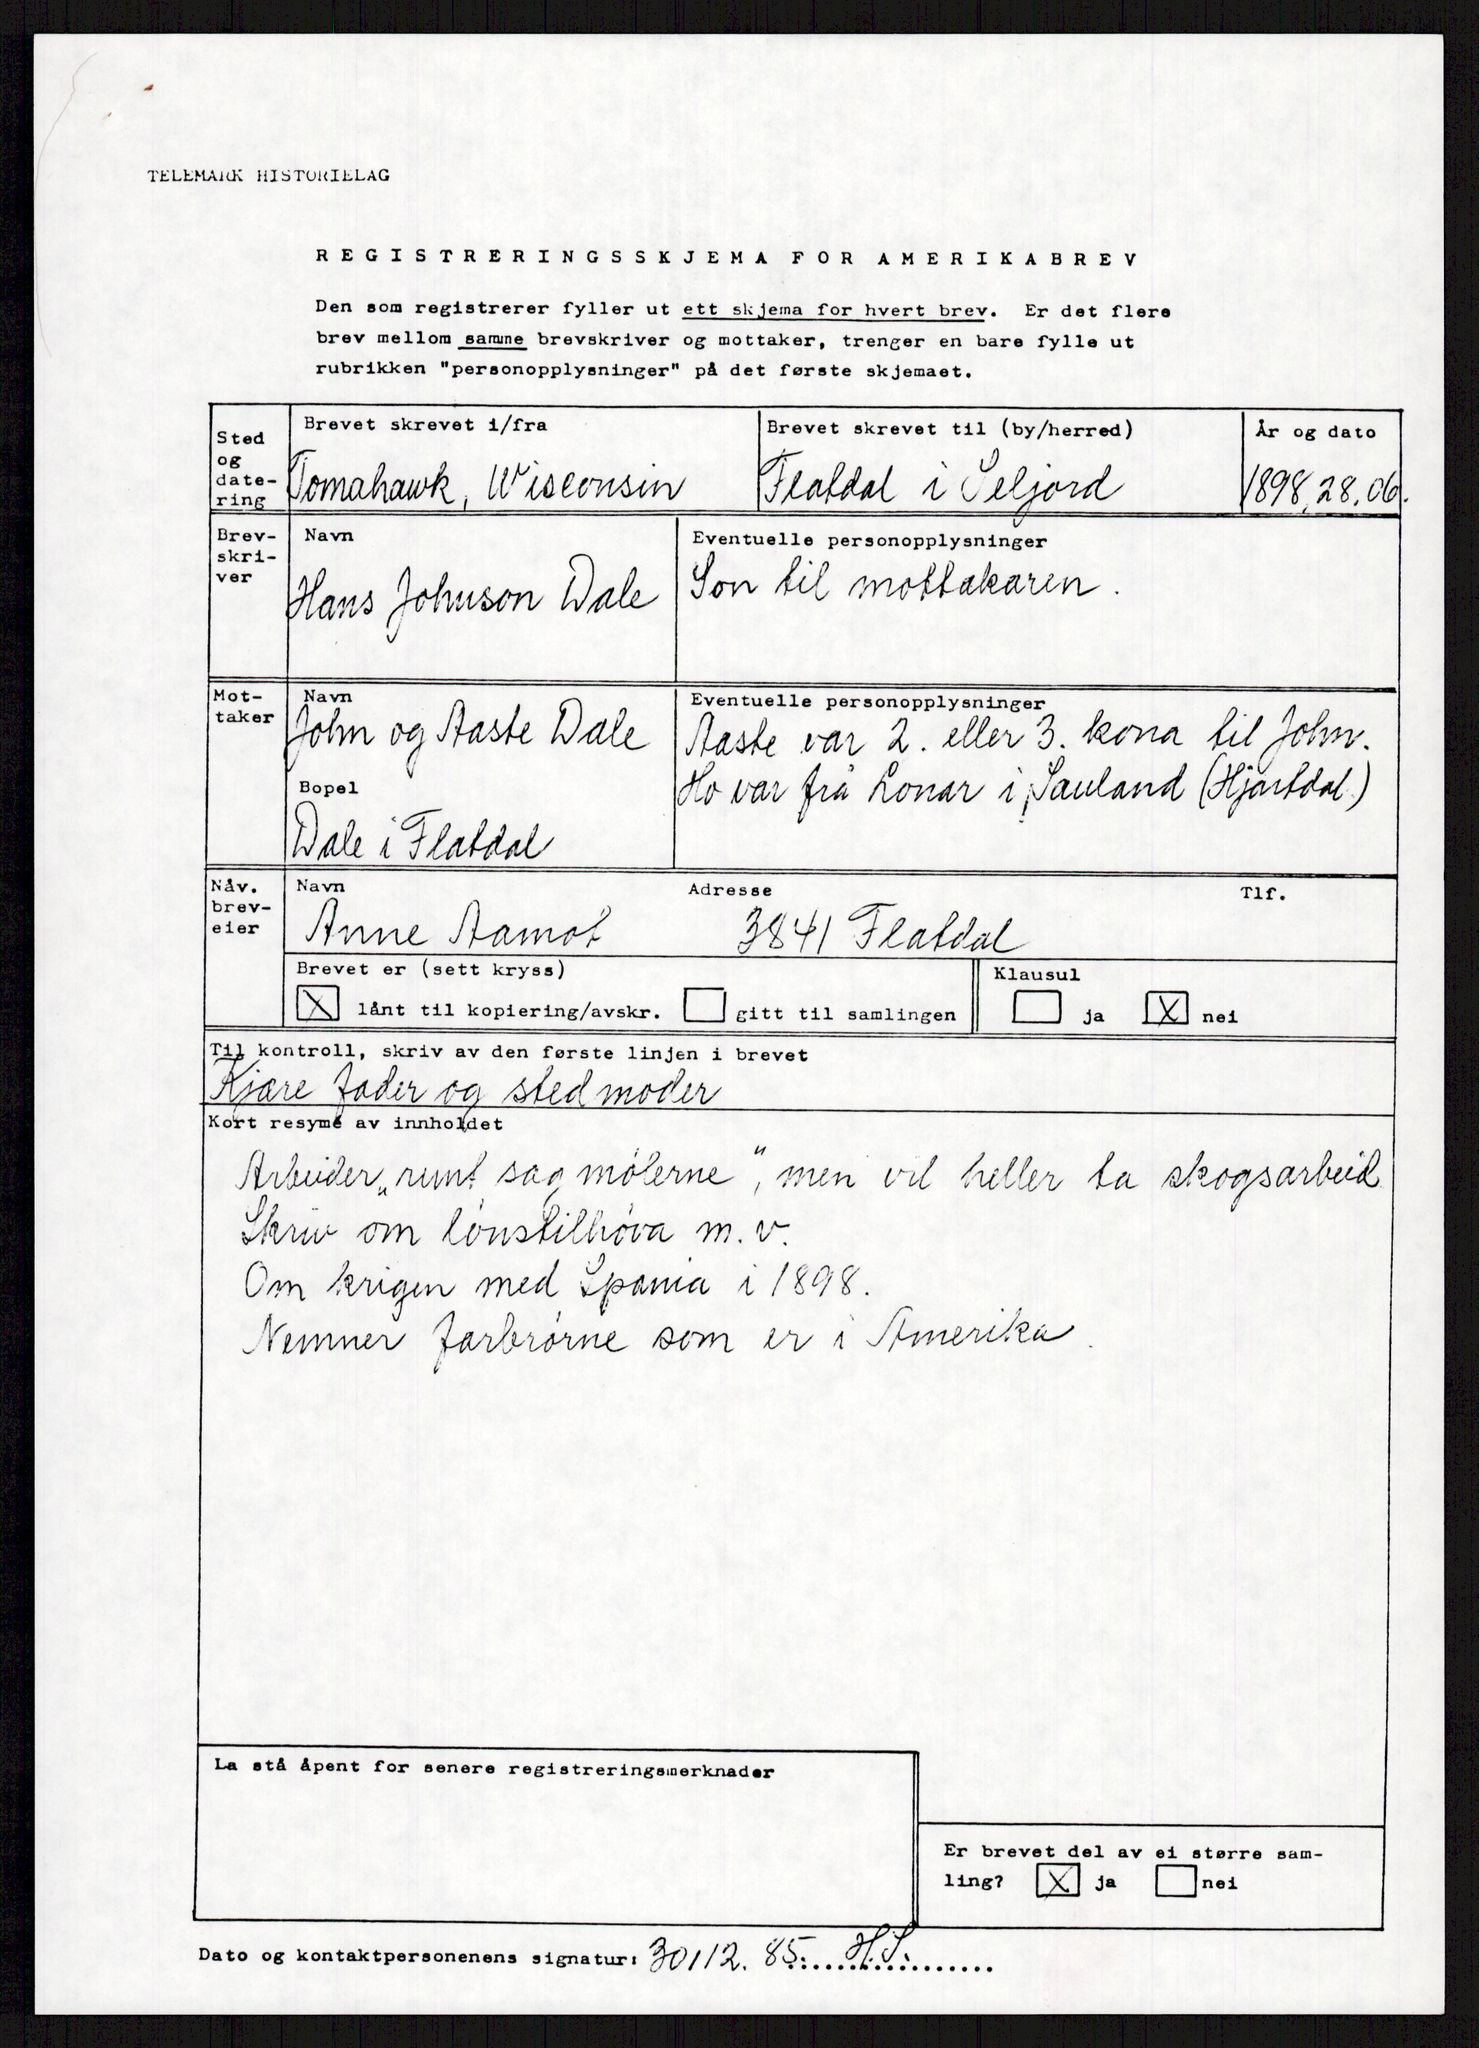 TELEMARK HISTORIELAG
REGISTRERINGSSKJEMA FOR AMERIKABREV
Den som registrerer fyller ut ett skjema for hvert brev. Er det flere
brev mellom samme brevskriver og mottaker, trenger en bare fylle ut
rubrikken "personopplysninger" på det første skjemaet.
Sted
og
date-
ring
Brevet skrevet i/fra
Tomahawk, Wisconsin
Brevet skrevet til (by/herred)
Flatdal i Seljord
År og dato
1898.28.06.
Brev-
skri-
ver
Navn
Hans Johnson Dale
Eventuelle personopplysninger
Son til mottakaren.
Mot-
taker
Navn
John og Aaste Dale
Bopel
Dale i Flatdal
Eventuelle personopplysninger
Aaste var 2. eller 3. kona til John.
Ho var frå Lonar i Sauland (Hjartdal)
Nåv.
brev-
eier
Navn
Anne Aamot
Adresse
3841 Flatdal
Tlf.
Brevet er (sett kryss)
X lånt til kopiering/avskr. gitt til samlingen
Klausul
ja X nei
Til kontroll, skriv av den første linjen i brevet
Kjære Fader og stedmoder
Kort resymé av innholdet
Arbeider „runt sagmølerne", men vil heller ta skogsarbeid.
Skriv om lønstilhøva m.v.
Om krigen med Spania i 1898.
Nemner farbrørne som er i Amerika.
La stå åpent for senere registreringsmerknader
Er brevet del av ei større sam-
ling? X ja nei
Dato og kontaktpersonenens signatur: 30/12.85. H.S.